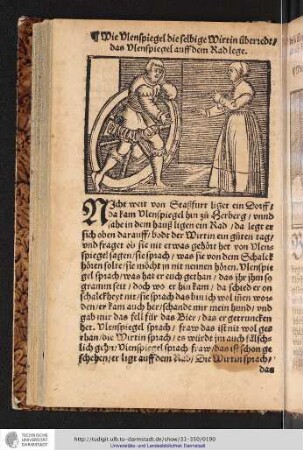 ¶ Wie Vlenspiegel die selbige Wirtin überredt/
das Vlenspiegel auff dem Rad lege.
NIcht weit von Staßfurt liget ein Dorff/
da kam Vlenspiegel hin zů Herberg / vnnd
sahe in dem hauß ligen ein Rad / da legt er
sich oben darauff / bode der Wirtin ein gůten tag/
vnd fraget ob sie nit etwas gehört het von Vlens
spiegel sagen / sie sprach / was sie von dem Schalck
hören solte / sie möcht jn nit nennen hören. Vlenspie
gel sprach / was hat er euch gethan / das jhr jhm so
gramm seit / doch wo er hin kam / da schied er on
schalckheyt nit / sie sprach das bin ich wol jnnen wors
den / er kam auch her / schande mir mein hund / vnd
gab mir das fell für das Bier / das er getruncken
het. Vlenspiegel sprach / fraw das ist nit wol ges
than / die Wirtin sprach / es würde jm auch
gehn / Vlenspiegel sprach fraw / das ist schon ge
schehen / er ligt auff dem Rad / Die Wirtin sprach /
das
TECHNISCHE
UNIVERSITÄT
DARMSTADT
http://tudigit.ulb.tu-darmstadt.de/show/31-350/0190
Universitäts- und Landesbibliothek Darmstadt